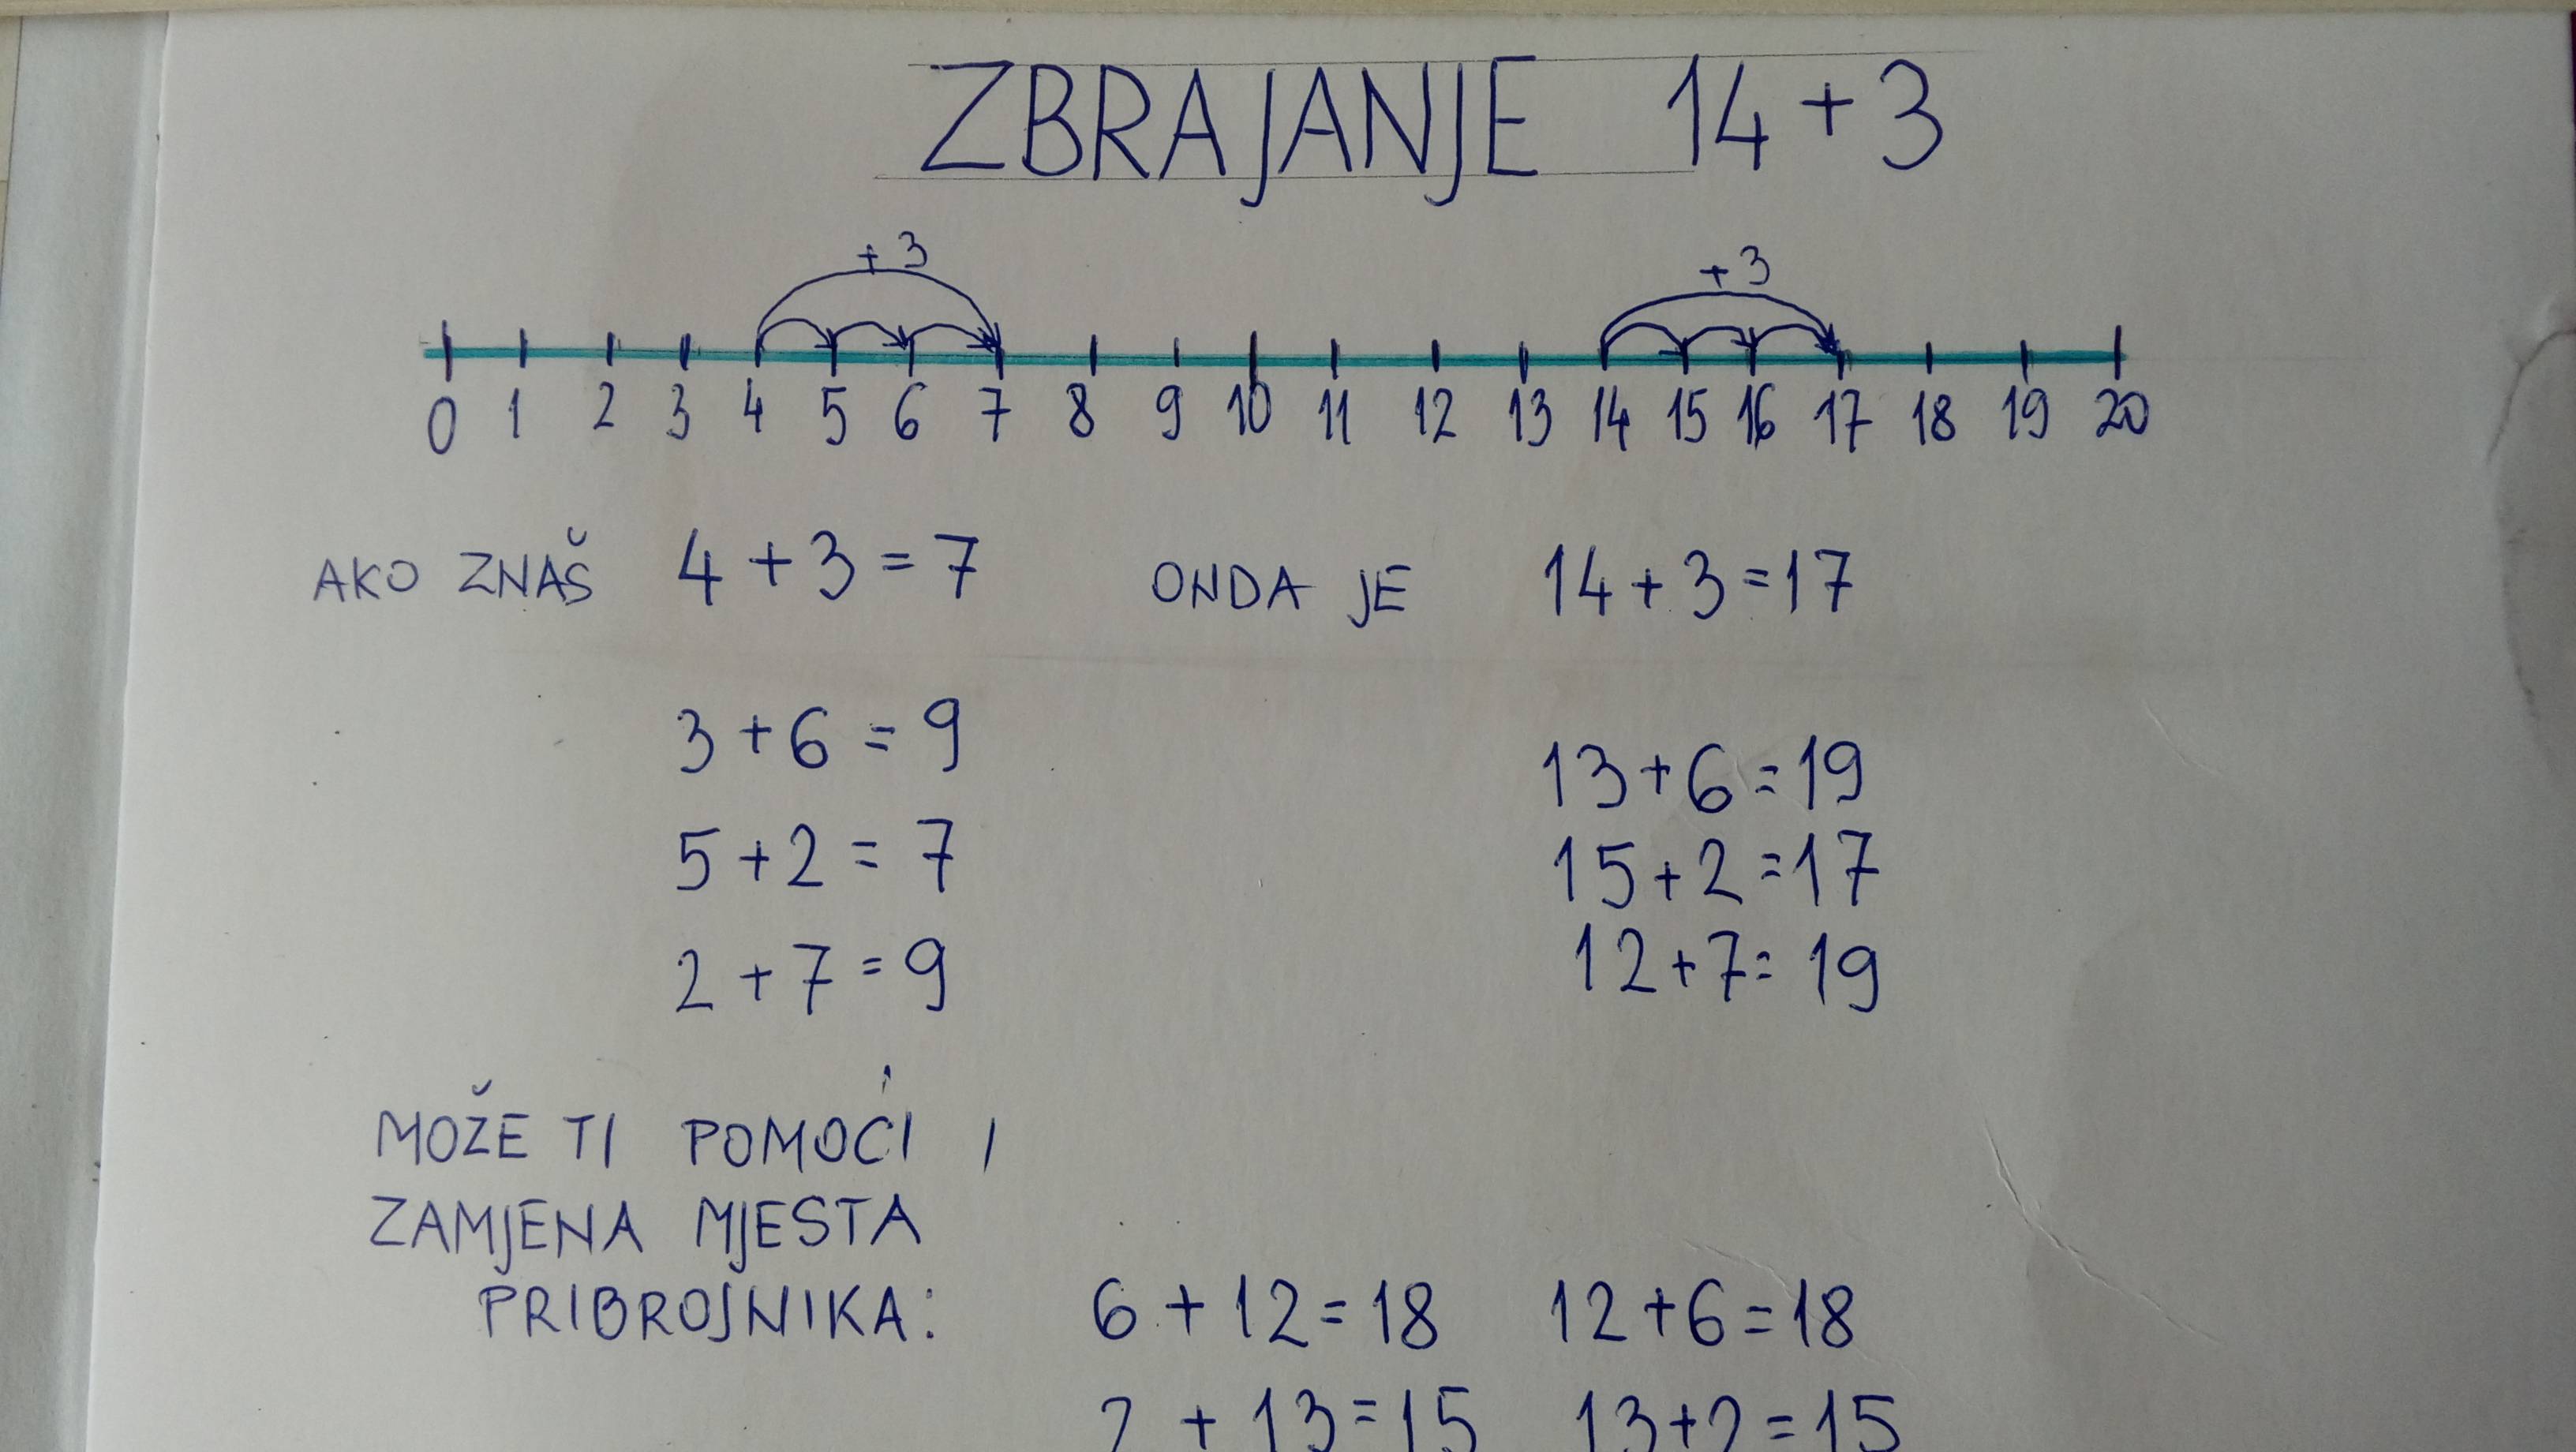 ZBRAJANJE 14 + 3
+ 3 +3
0 1 2 3 4 5 6 7 8 9 10 11 12 13 14 15 16 17 18 19 20
AKO ZNAŠ 4 + 3 = 7 ONDA JE 14 + 3 = 17
3 + 6 = 9 13 + 6 = 19
5 + 2 = 7 15 + 2 = 17
2 + 7 = 9 12 + 7 = 19
MOŽE TI POMOĆI I
ZAMJENA MJESTA
PRIBROJNIKA: 6 + 12 = 18 12 + 6 = 18
2 + 13 = 15 13 + 2 = 15